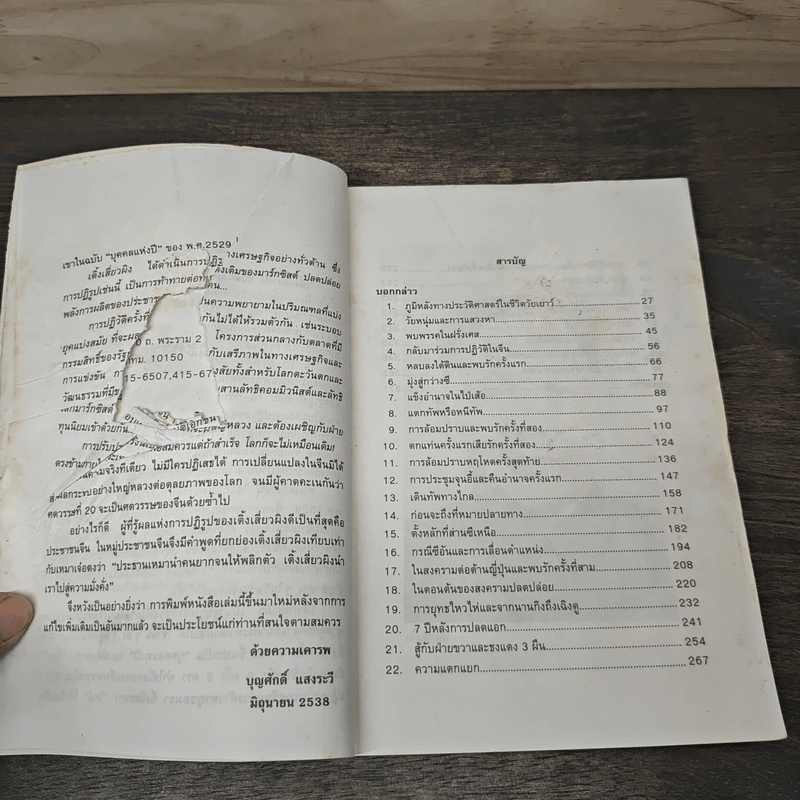 เขาในฉบับ "บุคคลแห่งปี" ของ พ.ศ.2529
เติ้งเสี่ยวผิง ได้ดำเนินการปฏิรูปทางเศรษฐกิจอย่างทั่วด้าน ซึ่ง
การปฏิรูปเช่นนี้ เป็นการท้าทายต่อ ดั้งเดิมของมาร์กซิสต์ ปลดปล่อย
พลังการผลิตของประชาช
การปฏิวัติครั้งที่ เป็นความพยายามในปริมณฑลที่แบ่ง
ยุคแบ่งสมัย ที่จะผส กันไม่ได้ให้รวมตัวกัน เช่นระบอบ
กรรมสิทธิ์ของรัฐ ถ. พระราม 2 โครงการส่วนกลางกับตลาดที่มี
การแข่งขัน กทม. 10150 กับเสรีภาพในทางเศรษฐกิจและ
วัฒนธรรมที่มีข 15-6507,415-67 งสัยทั้งสำหรับโลกตะวันตกและ
โลกมาร์กซิสต์ สานลัทธิคอมมิวนิสต์และลัทธิ
ทุนนิยมเข้าด้วยกัน หลวง และต้องเผชิญกับฝ่าย
ตรงข้ามภายใน สมควรแต่ถ้าสำเร็จ โลกก็จะไม่เหมือนเดิม!
ตามจริงทีเดียว ไม่มีใครปฏิเสธได้ การเปลี่ยนแปลงในจีนมิได้
ผลกระทบอย่างใหญ่หลวงต่อดุลยภาพของโลก จนมีผู้คาดคะเนกันว่า
ศตวรรษที่ 20 จะเป็นศตวรรษของจีนด้วยซ้ำไป
อย่างไรก็ดี ผู้ที่รู้ผลแห่งการปฏิรูปของเติ้งเสี่ยวผิงดีเป็นที่สุดคือ
ประชาชนจีน ในหมู่ประชาชนจีนจึงมีคำพูดที่ยกย่องเติ้งเสี่ยวผิงเทียบเท่า
กับเหมาเจ๋อตงว่า "ประธานเหมานำคนยากจนให้พลิกตัว เติ้งเสี่ยวผิงนำ
เราไปสู่ความมั่งคั่ง"
จึงหวังเป็นอย่างยิ่งว่า การพิมพ์หนังสือเล่มนี้ขึ้นมาใหม่หลังจากการ
แก้ไขเพิ่มเติมเป็นอันมากแล้ว จะเป็นประโยชน์แก่ท่านที่สนใจตามสมควร
ด้วยความเคารพ
บุญศักดิ์ แสงระวี
มิถุนายน 2538
สารบัญ
บอกกล่าว
1. ภูมิหลังทางประวัติศาสตร์ในชีวิตวัยเยาว์ 27
2. วัยหนุ่มและการแสวงหา 35
3. พบพรรคในฝรั่งเศส 45
4. กลับมาร่วมการปฏิวัติในจีน 56
5. หลบลงใต้ดินและพบรักครั้งแรก 66
6. มุ่งสู่กว่างซี 77
7. แข็งอำนาจในไป่เส้อ 88
8. แตกทัพหรือหนีทัพ 97
9. การล้อมปราบและพบรักครั้งที่สอง 110
10. ตกแท่นครั้งแรกเสียรักครั้งที่สอง 124
11. การล้อมปราบหฤโหดครั้งสุดท้าย 136
12. การประชุมจุนอี้และคืนอำนาจครั้งแรก 147
13. เดินทัพทางไกล 158
14. ก่อนจะถึงที่หมายปลายทาง 171
15. ตั้งหลักที่ส่านซีเหนือ 182
16. กรณีซีอันและการเลื่อนตำแหน่ง 194
17. ในสงครามต่อต้านญี่ปุ่นและพบรักครั้งที่สาม 208
18. ในตอนต้นของสงครามปลดปล่อย 220
19. การยุทธไหวไห่และจากนานกิงถึงเฉิงตู 232
20. 7 ปีหลังการปลดแอก 241
21. สู้กับฝ่ายขวาและธงแดง 3 ผืน 254
22. ความแตกแยก 267